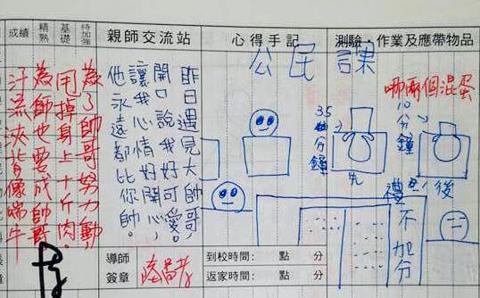 成績
精熟
基礎
待加強
親師交流站
心得手記
測驗、作業及應帶物品
為了帥哥努力動
甩掉身上十斤肉。
為師也要成帥哥
汗流浹背像端午
昨日遇見大帥哥,
開口說我好可愛。
讓我心情好開心,
他永遠都比你帥。
公民課
哪兩個混蛋
35分鐘
10分鐘
先
後
不加分
導師
簽章
到校時間: 點 分
返家時間: 點 分